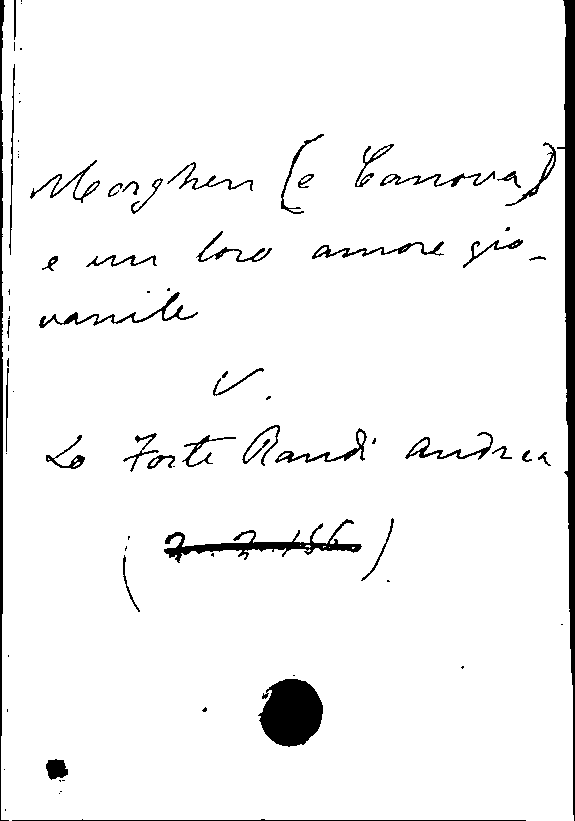 Morghen (e Canova)
e un loro amore gio-
vanile
V.
Lo Forte Randi Andrea